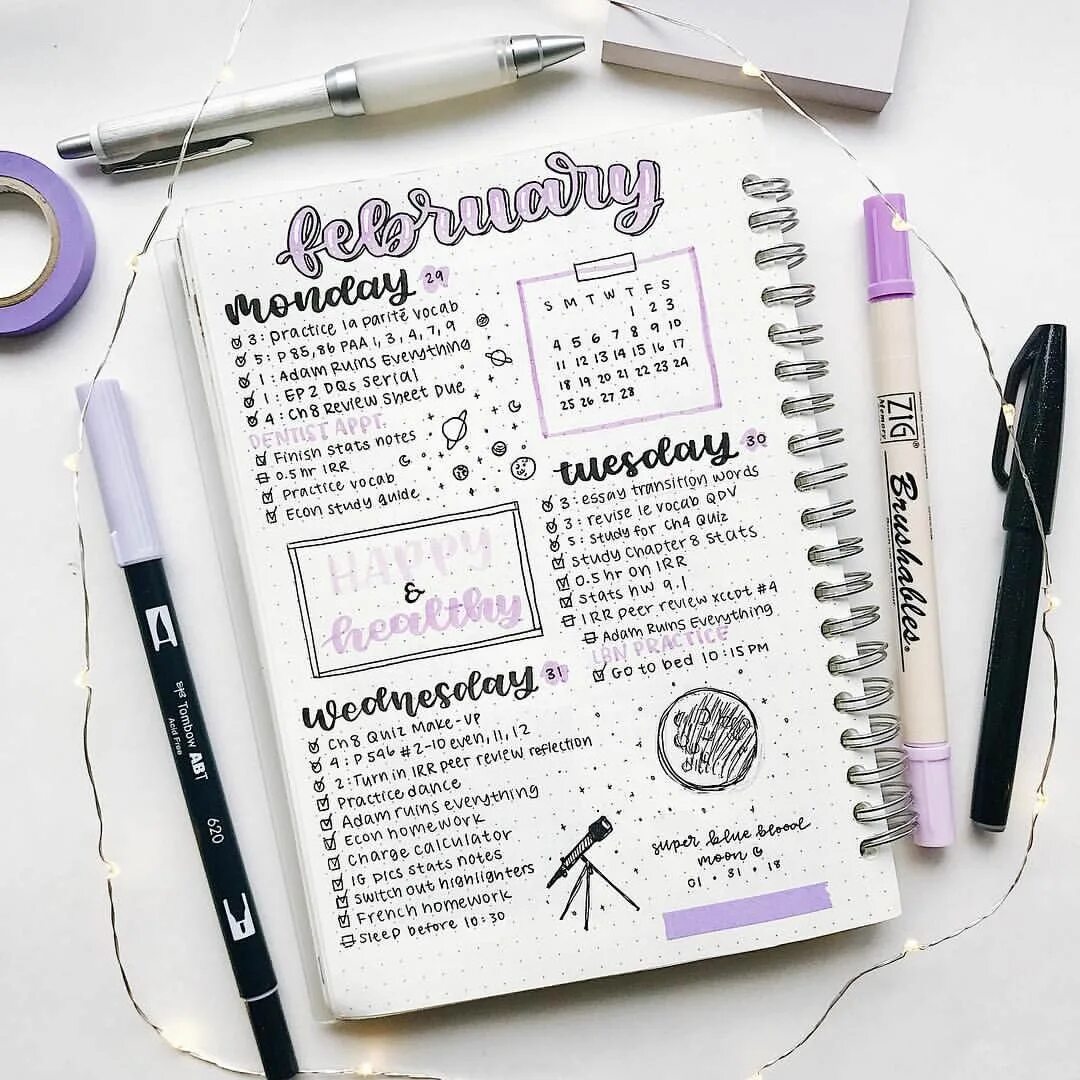 february
monday 29
3: practice la parité vocab
5: P 85, 86 PAA 1, 3, 4, 7, 9
1: Adam Ruins Everything
1: EP 2 DQs Serial
4: Ch 8 Review Sheet Due
DENTIST APPT.
Finish stats notes
0.5 hr IRR
Practice vocab
Econ study guide
S M T W T F S
1 2 3
4 5 6 7 8 9 10
11 12 13 14 15 16 17
18 19 20 21 22 23 24
25 26 27 28
tuesday 30
3: essay transition words
3: revise le vocab QDV
5: study for Ch4 Quiz
Study Chapter 8 Stats
0.5 hr on IRR
Stats hw 9.1
IRR peer review xcept #4
Adam Ruins Everything
LBN PRACTICE
Go to bed 10:15 PM
HAPPY
&
healthy
wednesday 31
Ch 8 Quiz Make-UP
4: P 546 #2-10 even, 11, 12
2: Turn in IRR peer review reflection
Practice dance
Adam ruins everything
Econ homework
Charge calculator
IG pics stats notes
Switch out highlighters
French homework
Sleep before 10:30
super blue blood
moon
01 • 31 • 18
Tombow ABT
Acid Free
620
ZIG
Memory
Brushables.